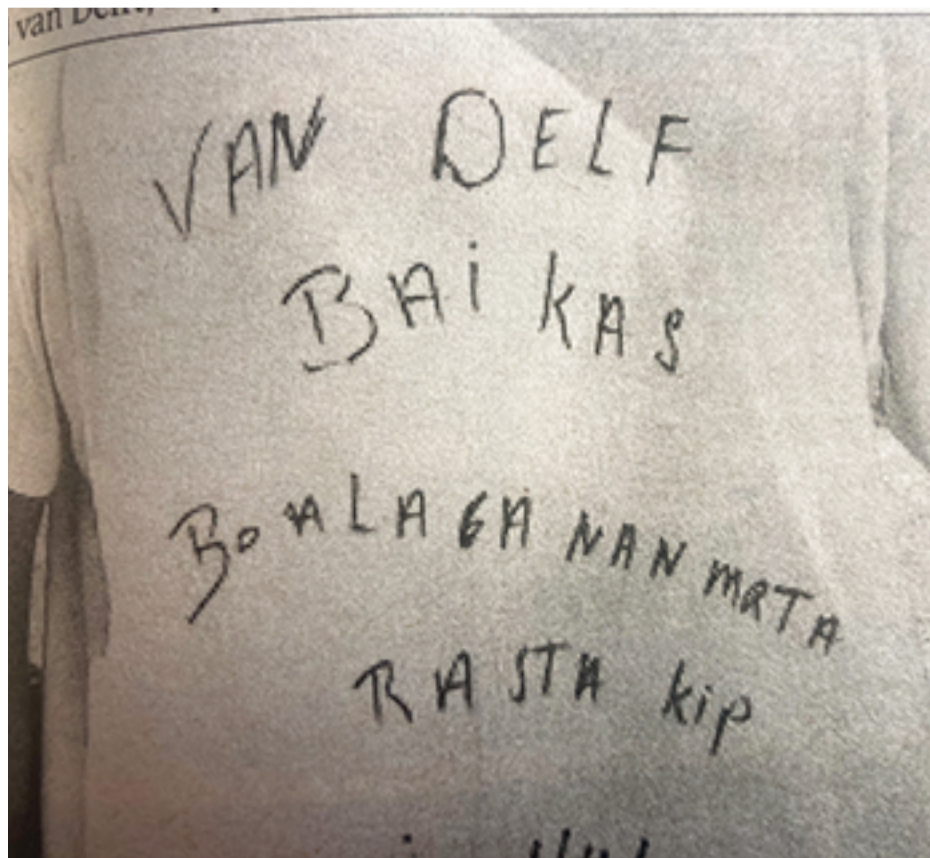 van Delft,
VAN DELF
BAi KAS
Bo A LAGA NAN MATA
RASTA kip